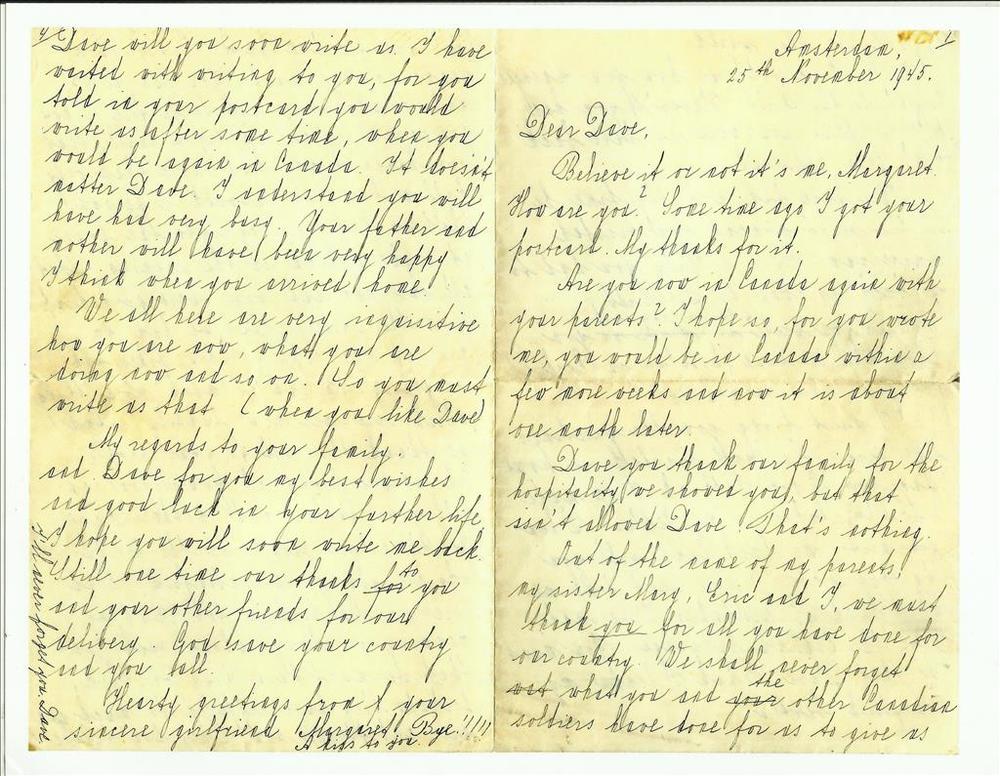 1
Amsterdam,
25th November 1945.
Dear Dave,
Believe it or not it's me, Margaret.
How are you? Some time ago I got your
postcard. My thanks for it.
Are you now in Canada again with
your parents? I hope so, for you wrote
me, you would be in Canada within a
few more weeks and now it is about
one month later.
Dave you thank our family for the
hospitality we showed you, but that
isn't allowed Dave. That's nothing.
Out of the name of my parents,
my sister Mary, Eric and I, we must
thank you for all you have done for
our country. We shall never forget
wat what you and your the other Canadian
soldiers have done for us to give us
4
Dave will you soon write us. I have
waited with writing to you, for you
told in your postcard you would
write us after some time, when you
would be again in Canada. It doesn't
matter Dave. I understand you will
have had very busy. Your father and
mother will have been very happy
I think when you arrived home.
We all here are very inquisitive
how you are now, what you are
doing now and so on. So you must
write us that (when you like Dave)
My regards to your family.
and Dave for you my best wishes
and good luck in your further life,
I hope you will soon write me back.
Still one time our thanks for to you
and your other friends for our
delibery. God save your country
and you all.
Hearty greetings from your
sincere girlfriend Margaret. Bye!!!!!
A kiss to you.
I'll never forget you Dave